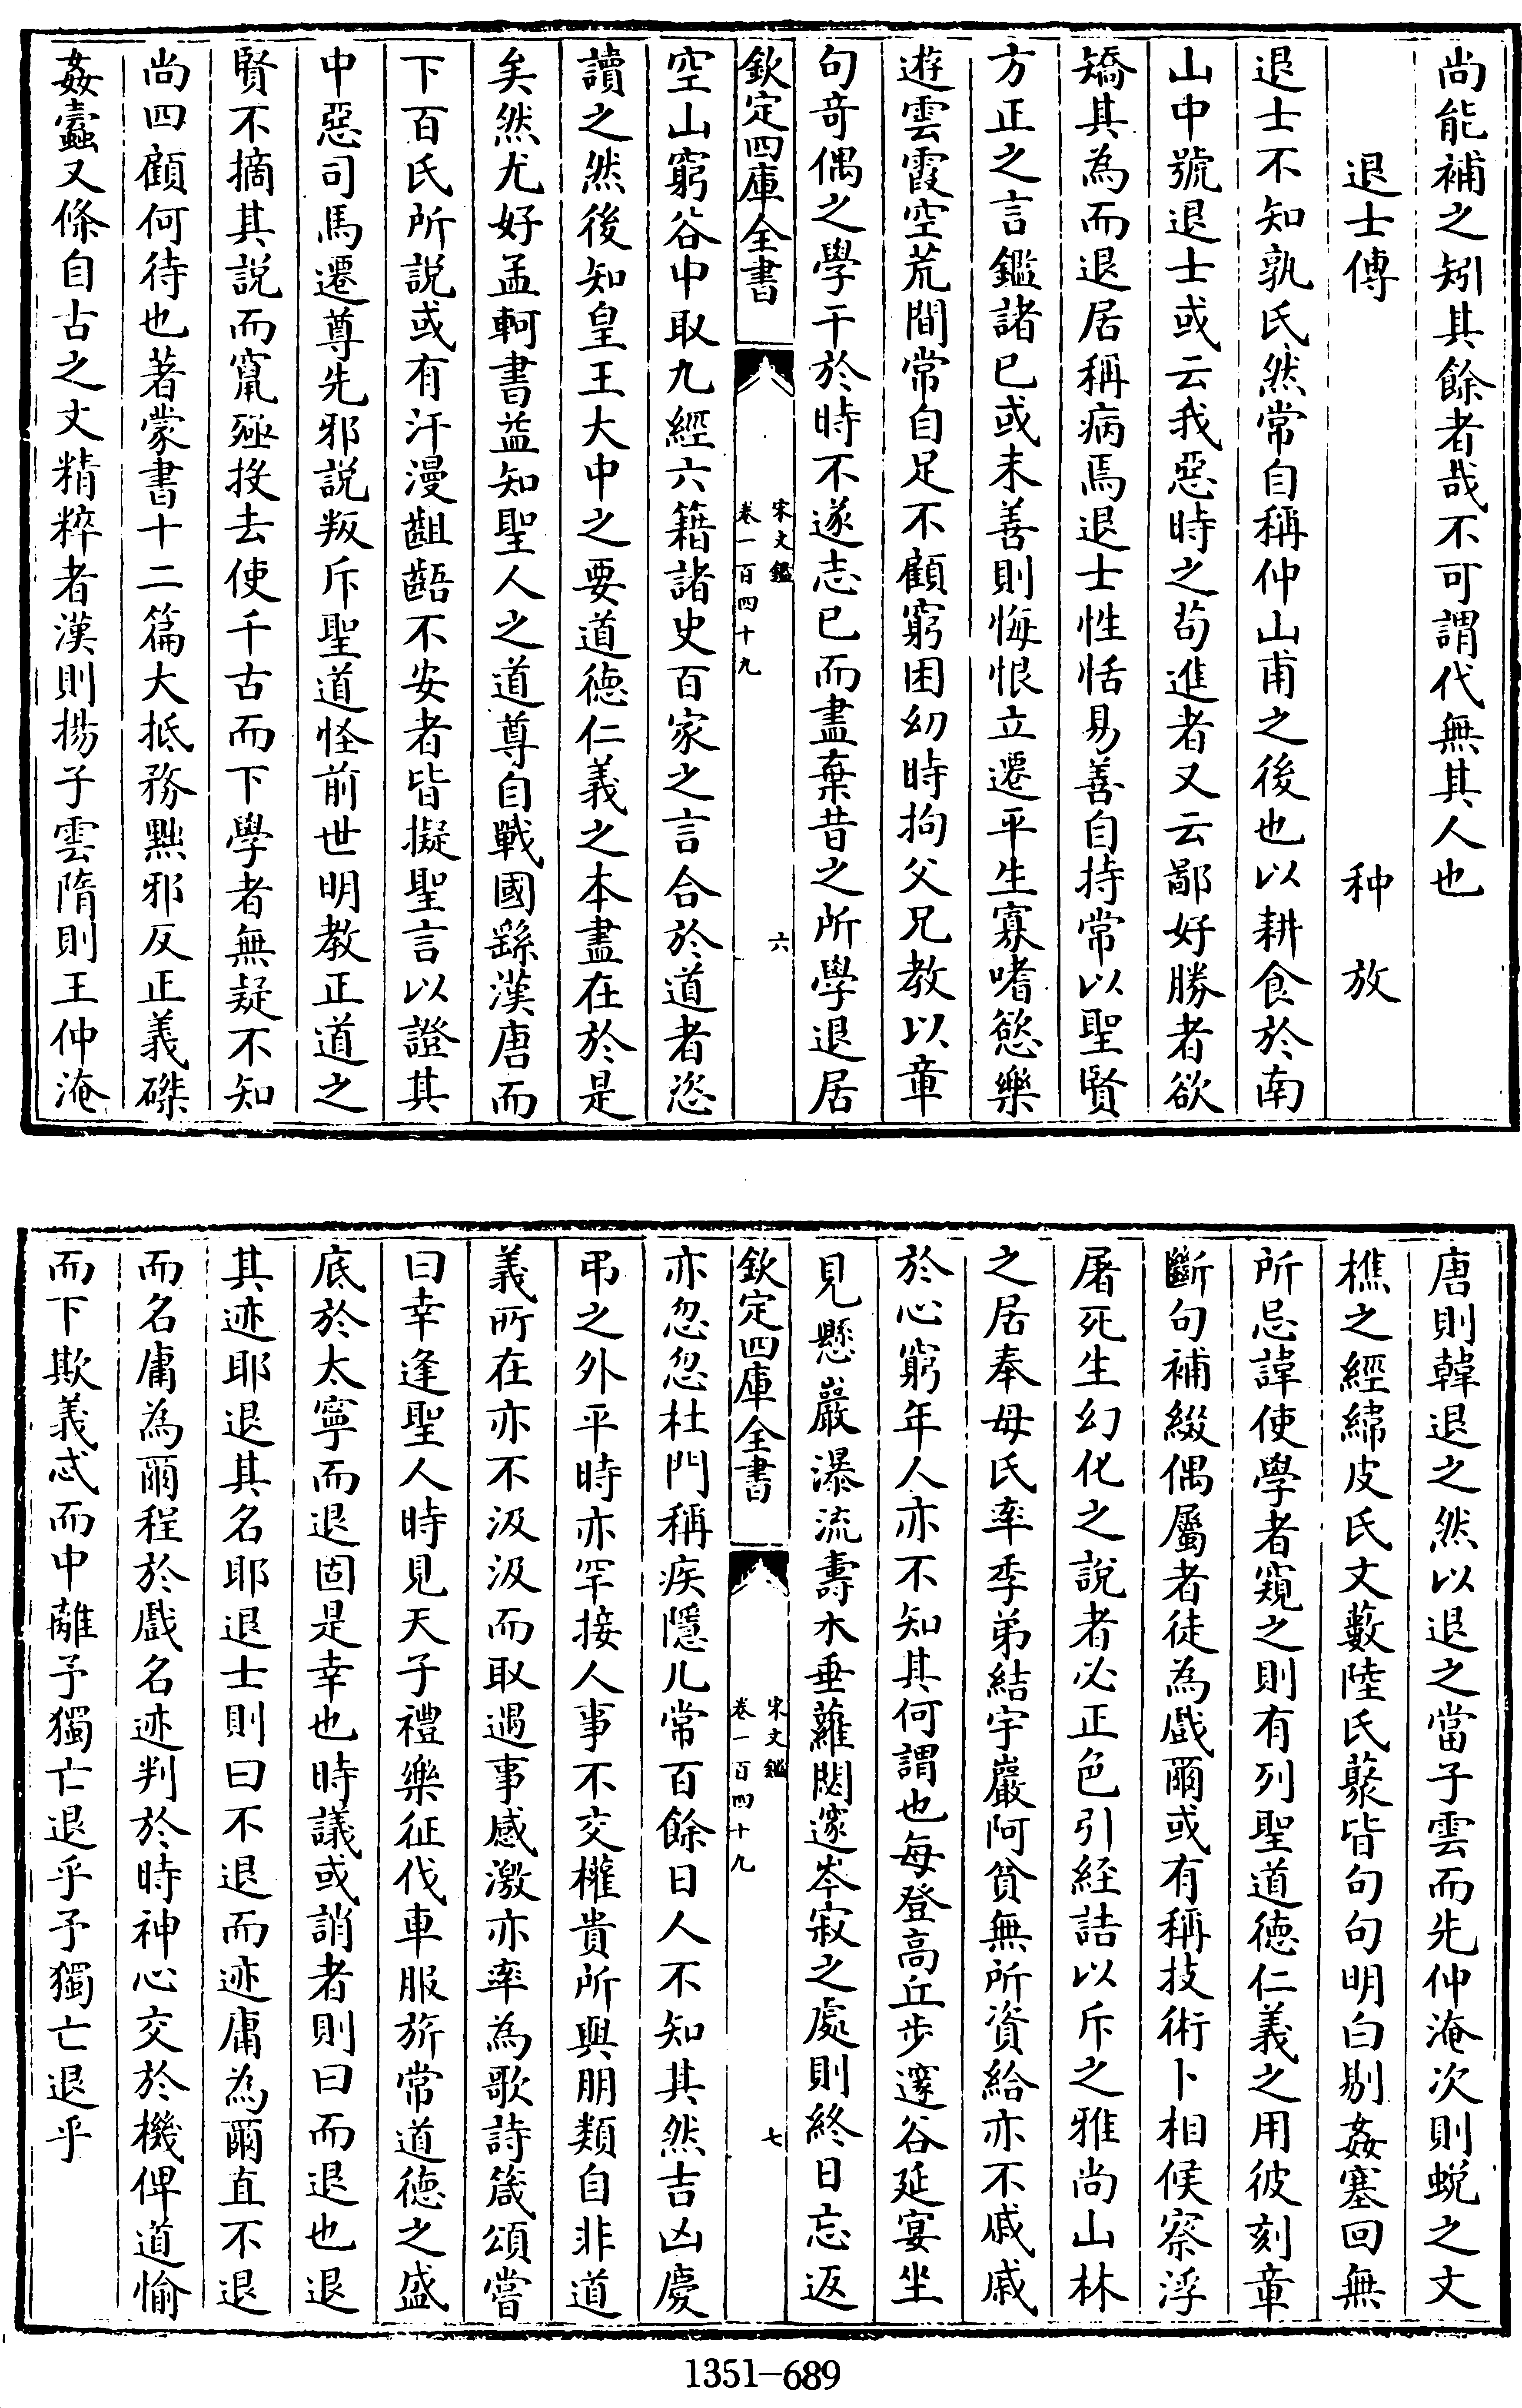 尚能補之矧其餘者哉不可謂代無其人也
退士傳　　　种放
退士不知孰氏然常自稱仲山甫之後也以耕食於南
山中號退士或云我惡時之苟進者又云鄙好勝者欲
矯其為而退居稱病焉退士性恬易善自持常以聖賢
方正之言鑑諸已或未善則悔恨立遷平生寡嗜慾樂
遊雲霞空荒間常自足不顧窮困幼時拘父兄教以章
句奇偶之學干於時不遂志已而盡棄昔之所學退居
欽定四庫全書
宋文鑑
卷一百四十九
六
空山窮谷中取九經六籍諸史百家之言合於道者恣
讀之然後知皇王大中之要道德仁義之本盡在於是
矣然尤好孟軻書益知聖人之道尊自戰國繇漢唐而
下百氏所説或有汗漫齟齬不安者皆擬聖言以證其
中惡司馬遷尊先邪説叛斥聖道怪前世明教正道之
賢不摘其説而竄殛投去使千古而下學者無疑不知
尚四顧何待也著蒙書十二篇大抵務黜邪反正義磔
姦蠹又條自古之文精粹者漢則揚子雲隋則王仲淹
唐則韓退之然以退之當子雲而先仲淹次則蜕之文
樵之經緯皮氏文藪陸氏藂皆句句明白剔姦塞回無
所忌諱使學者窺之則有列聖道德仁義之用彼刻章
斷句補綴偶屬者徒為戲爾或有稱技術卜相候察浮
屠死生幻化之說者必正色引経詰以斥之雅尚山林
之居奉母氏率季弟結宇巖阿貧無所資給亦不戚戚
於心窮年人亦不知其何謂也每登高丘步邃谷延宴坐
見懸巖瀑流壽木垂蘿閎邃岑寂之處則終日忘返
欽定四庫全書
宋文鑑
卷一百四十九
七
亦忽忽杜門稱疾隱几常百餘日人不知其然吉凶慶
弔之外平時亦罕接人事不交權貴所與朋類自非道
義所在亦不汲汲而取遇事感激亦率為歌詩箴頌嘗
曰幸逢聖人時見天子禮樂征伐車服旂常道德之盛
底於太寧而退固是幸也時議或誚者則曰而退也退
其迹耶退其名耶退士則曰不退而迹庸為爾直不退
而名庸為爾程於戲名迹判於時神心交於機俾道愉
而下欺義忒而中離予獨亡退乎予獨亡退乎
1351—689